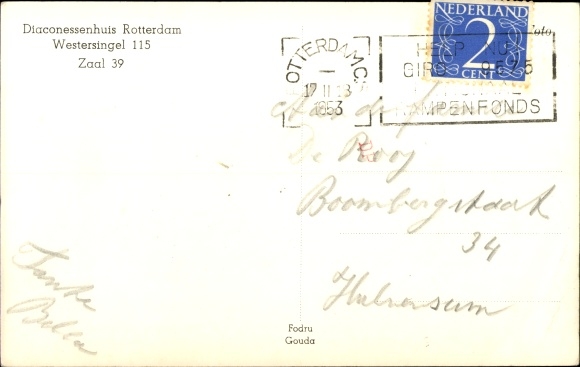 Diaconessenhuis Rotterdam
Westersingel 115
Zaal 39
NEDERLAND
2
CENT
foto
OTTERDAM C
17 II
1953
HELP NU
GIRO 9575
RAMPENFONDS
Aan de familie
De Rooy
Boombergstraat
34
Hilversum
Tante
Bella
Fodru
Gouda